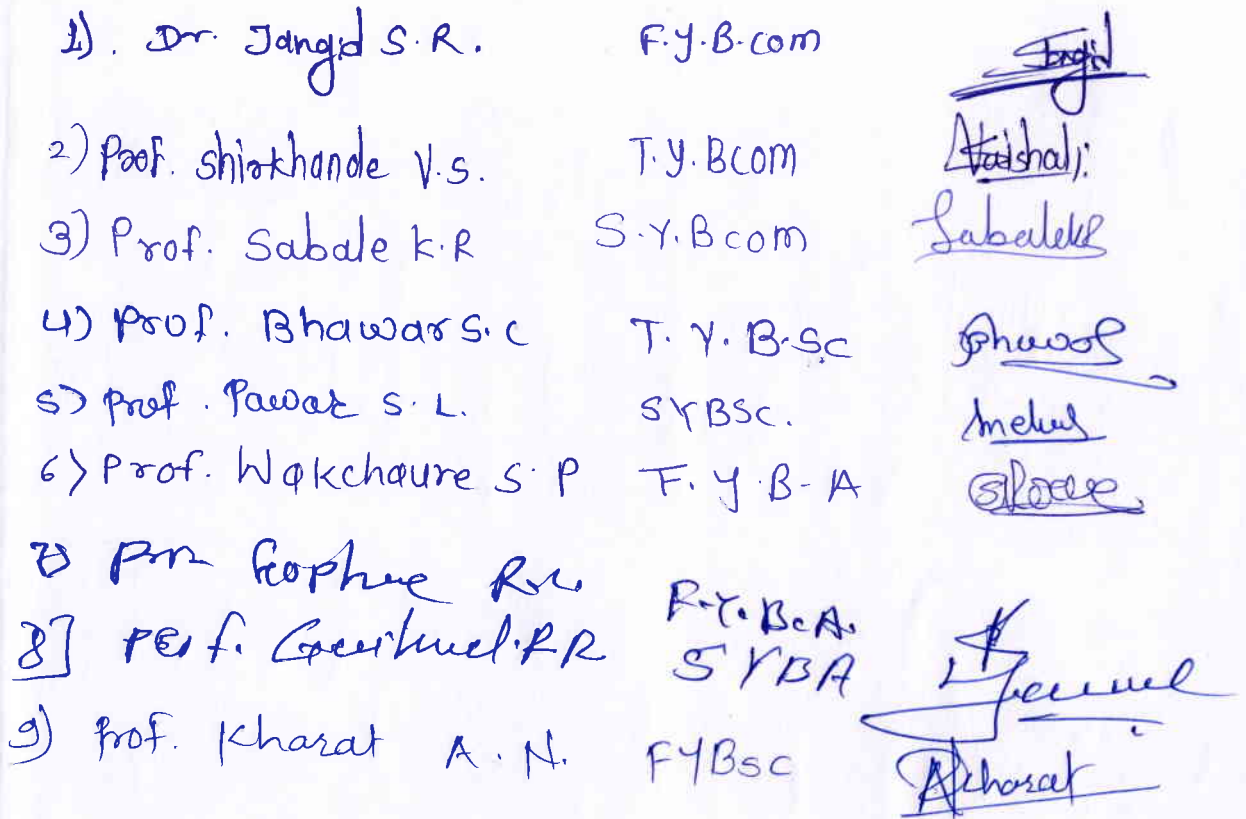 1). Dr. Jangid S.R. F.Y.B.com Jangid
2) Prof. Shirkhande V.S. T.Y.BCOM Vaishali
3) Prof. Sabale K.R S.Y.Bcom SabaleKR
4) Prof. Bhawar S.C T.Y.B.Sc
5) Prof. Pawar S.L. SYBSC.
6) Prof. Wakchaure S.P F.Y.B-A
7)
F.Y.B.C.A.
8] SYBA
9) Prof. Kharat A.N. FYBSC AKharat